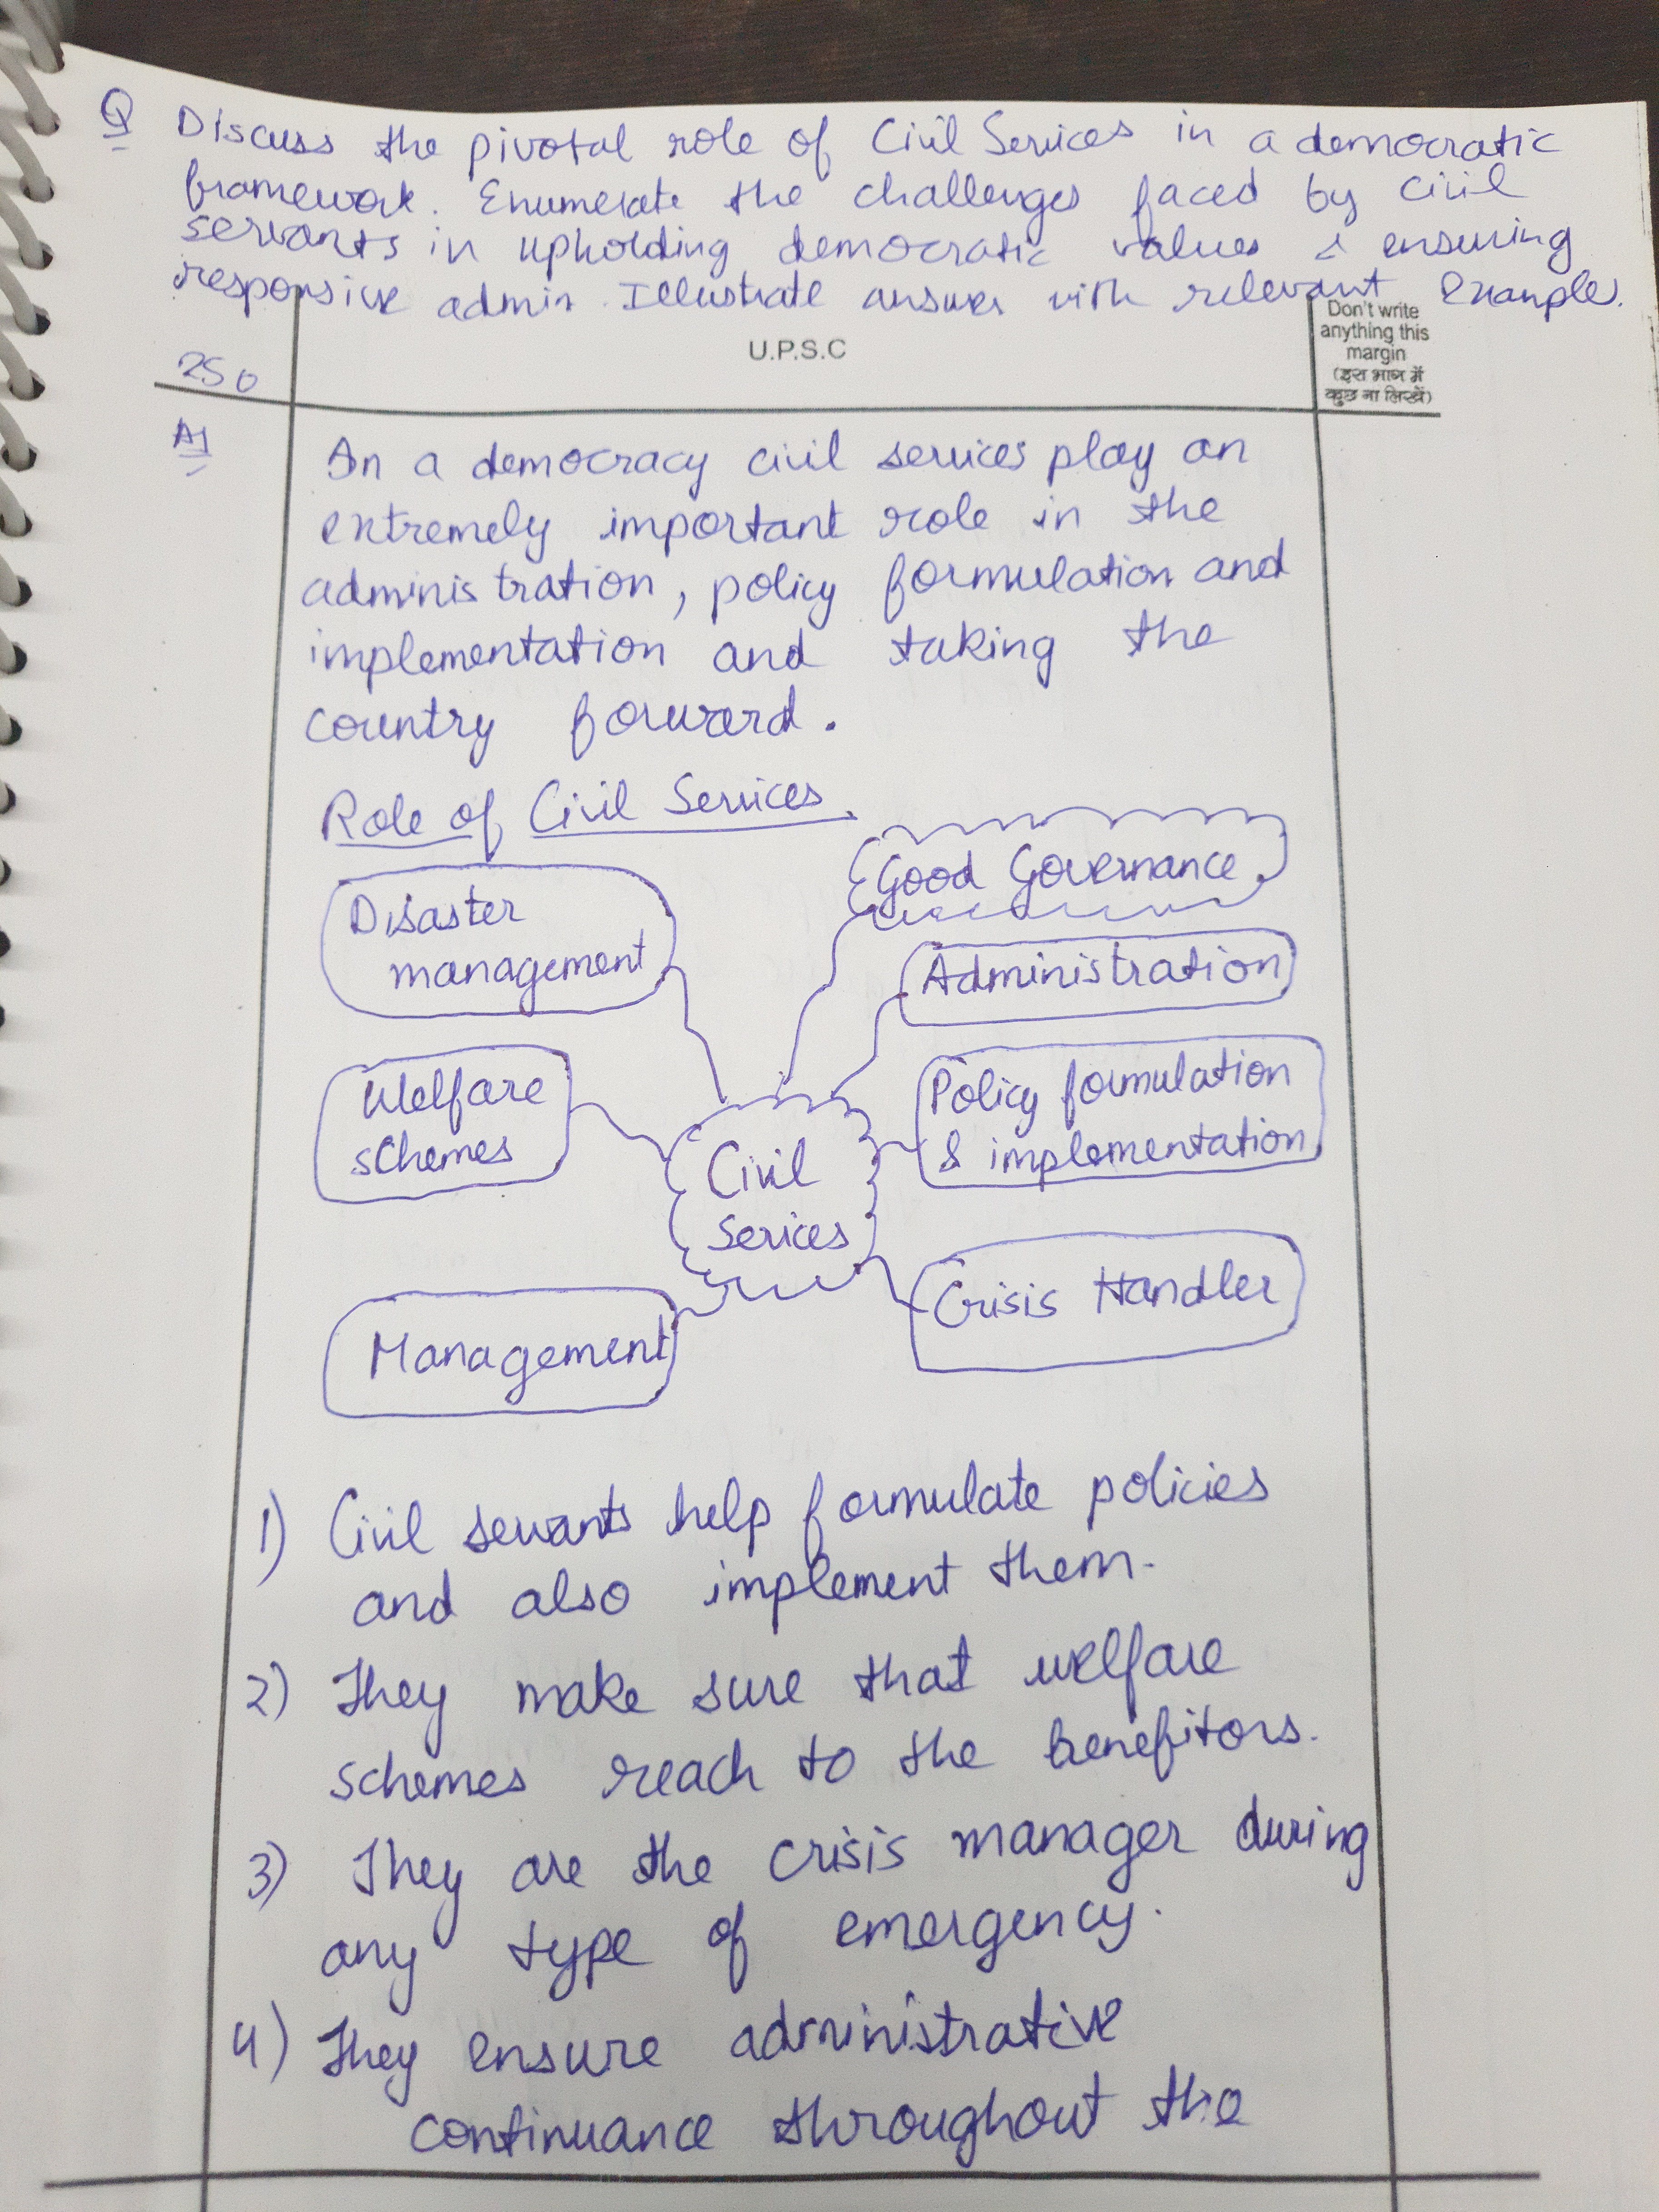 Q Discuss the pivotal role of Civil Services in a democratic
framework. Enumerate the challenges faced by civil
servants in upholding democratic values & ensuring
responsive admin. Illustrate answer with relevant Example.
Don't write
anything this
margin
(इस भाग में
कुछ ना लिखें)
U.P.S.C
250
A1
In a democracy civil services play an
extremely important role in the
administration, policy formulation and
implementation and taking the
country forward.
Role of Civil Services.
Good Governance
Disaster
management
Administration
Welfare
schemes
Policy formulation
& implementation
Civil
Serices
Crisis Handler
Management
1) Civil servants help formulate policies
and also implement them.
2) They make sure that welfare
schemes reach to the benefitors.
3) They are the crisis manager during
any type of emergency.
4) They ensure administrative
continuance throughout the